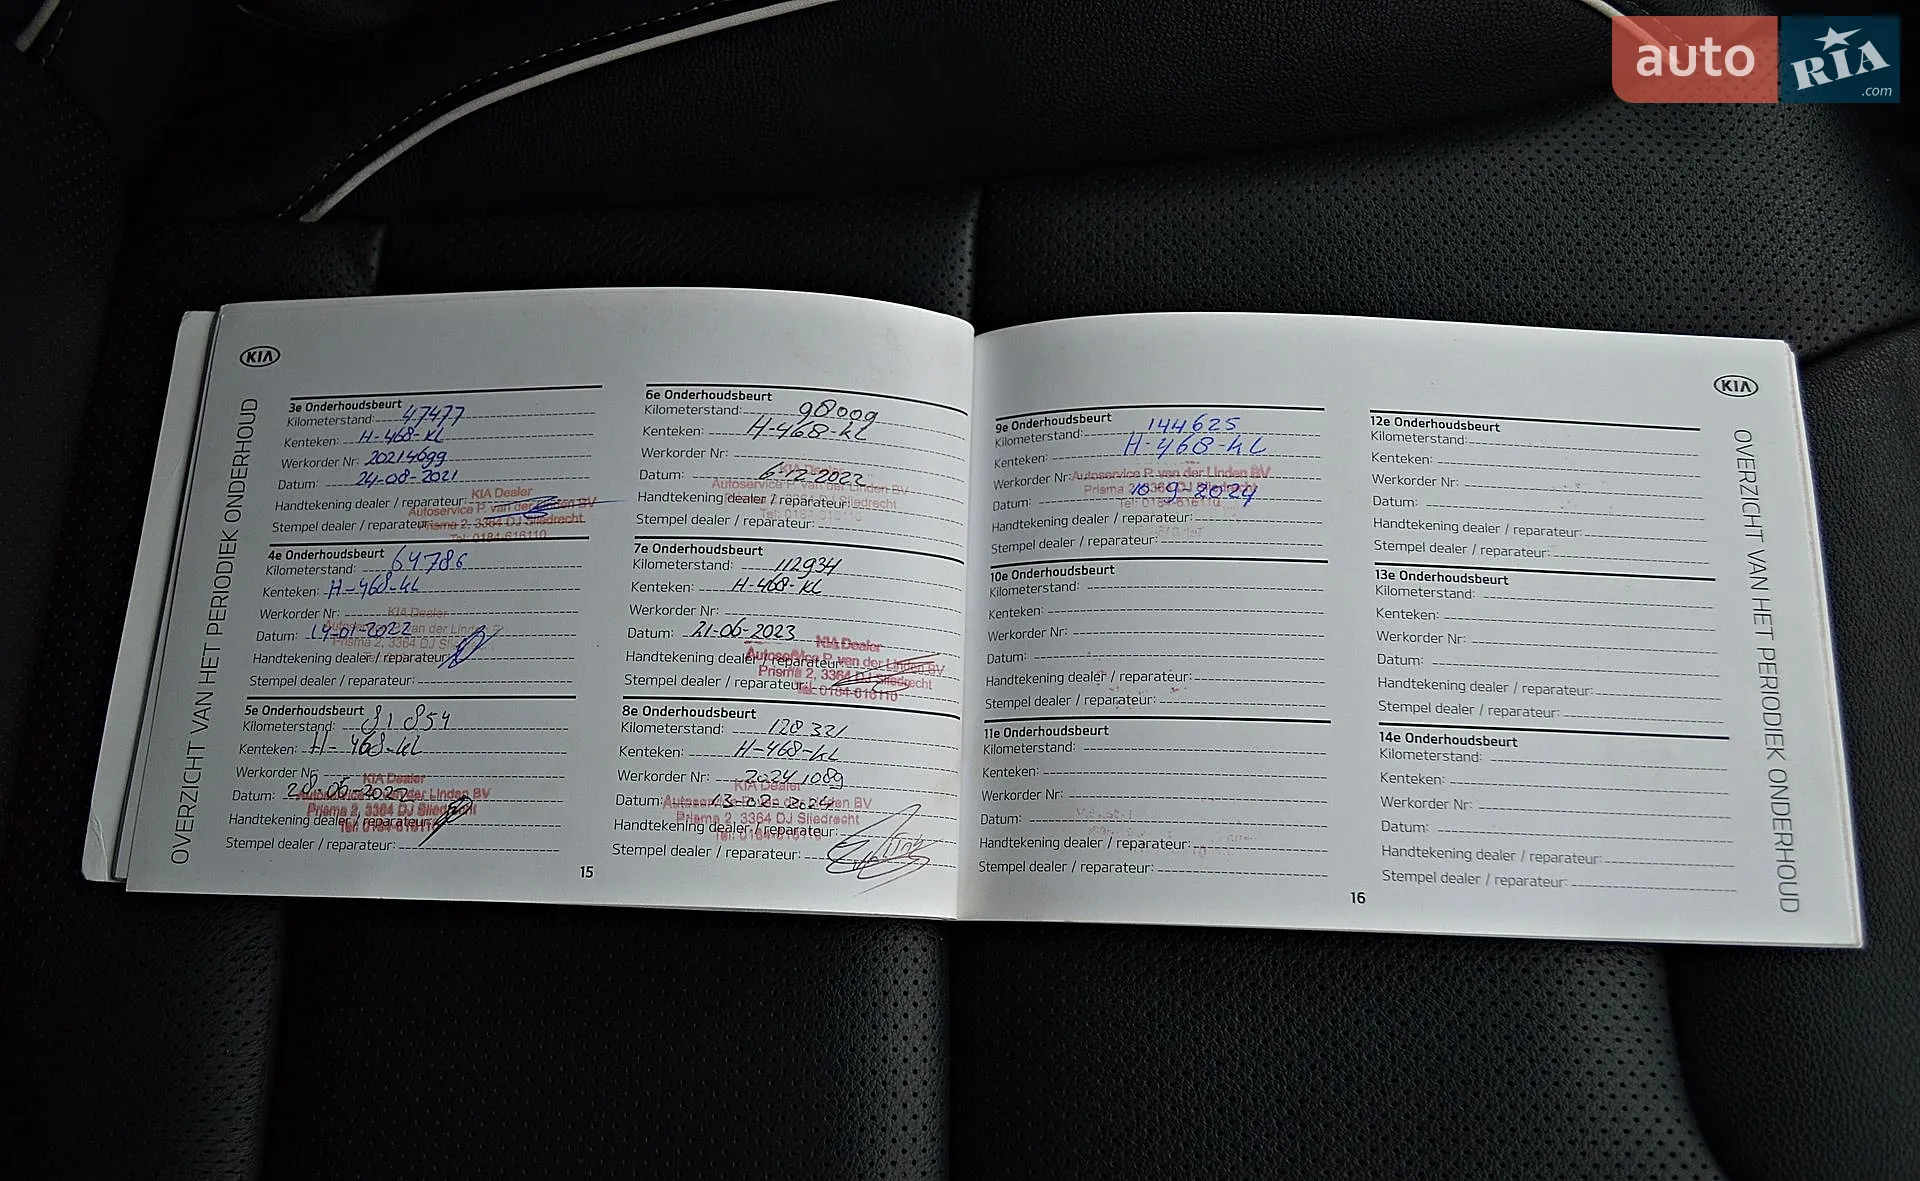 auto RIA.com
KIA
OVERZICHT VAN HET PERIODIEK ONDERHOUD
3e Onderhoudsbeurt
Kilometerstand: 47477
Kenteken: H-468-KL
Werkorder Nr: 20214699
Datum: 24-08-2021
Handtekening dealer / reparateur:
Stempel dealer / reparateur:
KIA Dealer
Autoservice P. van der Linden BV
Prisma 2, 3364 DJ Sliedrecht
Tel: 0184-616110
4e Onderhoudsbeurt
Kilometerstand: 64786
Kenteken: H-468-KL
Werkorder Nr:
Datum: 14-01-2022
Handtekening dealer / reparateur:
Stempel dealer / reparateur:
KIA Dealer
Autoservice P. van der Linden BV
Prisma 2, 3364 DJ
5e Onderhoudsbeurt
Kilometerstand: 81854
Kenteken: H-468-KL
Werkorder Nr:
Datum: 20-06-2022
Handtekening dealer / reparateur:
Stempel dealer / reparateur:
KIA Dealer
Autoservice P. van der Linden BV
Prisma 2, 3364 DJ Sliedrecht
Tel: 0184-616110
6e Onderhoudsbeurt
Kilometerstand: 98009
Kenteken: H-468-KL
Werkorder Nr:
Datum: 6-12-2022
Handtekening dealer / reparateur:
Stempel dealer / reparateur:
KIA Dealer
Autoservice P. van der Linden BV
Sliedrecht
Tel: 0184-616110
7e Onderhoudsbeurt
Kilometerstand: 112934
Kenteken: H-468-KL
Werkorder Nr:
Datum: 21-06-2023
Handtekening dealer / reparateur:
Stempel dealer / reparateur:
KIA Dealer
Autoservice P. van der Linden BV
Prisma 2, 3364 DJ Sliedrecht
Tel: 0184-616110
8e Onderhoudsbeurt
Kilometerstand: 128321
Kenteken: H-468-KL
Werkorder Nr: 20241089
Datum: 13-02-2024
Handtekening dealer / reparateur:
Stempel dealer / reparateur:
KIA Dealer
Autoservice P. van der Linden BV
Prisma 2, 3364 DJ Sliedrecht
Tel: 0184-616110
15
9e Onderhoudsbeurt
Kilometerstand: 144625
Kenteken: H-468-KL
Werkorder Nr:
Datum: 10-9-2024
Handtekening dealer / reparateur:
Stempel dealer / reparateur:
Autoservice P. van der Linden BV
Prisma 2, 3364 DJ Sliedrecht
Tel: 0184-616110
10e Onderhoudsbeurt
Kilometerstand:
Kenteken:
Werkorder Nr:
Datum:
Handtekening dealer / reparateur:
Stempel dealer / reparateur:
11e Onderhoudsbeurt
Kilometerstand:
Kenteken:
Werkorder Nr:
Datum:
Handtekening dealer / reparateur:
Stempel dealer / reparateur:
12e Onderhoudsbeurt
Kilometerstand:
Kenteken:
Werkorder Nr:
Datum:
Handtekening dealer / reparateur:
Stempel dealer / reparateur:
13e Onderhoudsbeurt
Kilometerstand:
Kenteken:
Werkorder Nr:
Datum:
Handtekening dealer / reparateur:
Stempel dealer / reparateur:
14e Onderhoudsbeurt
Kilometerstand:
Kenteken:
Werkorder Nr:
Datum:
Handtekening dealer / reparateur:
Stempel dealer / reparateur:
16
KIA
OVERZICHT VAN HET PERIODIEK ONDERHOUD